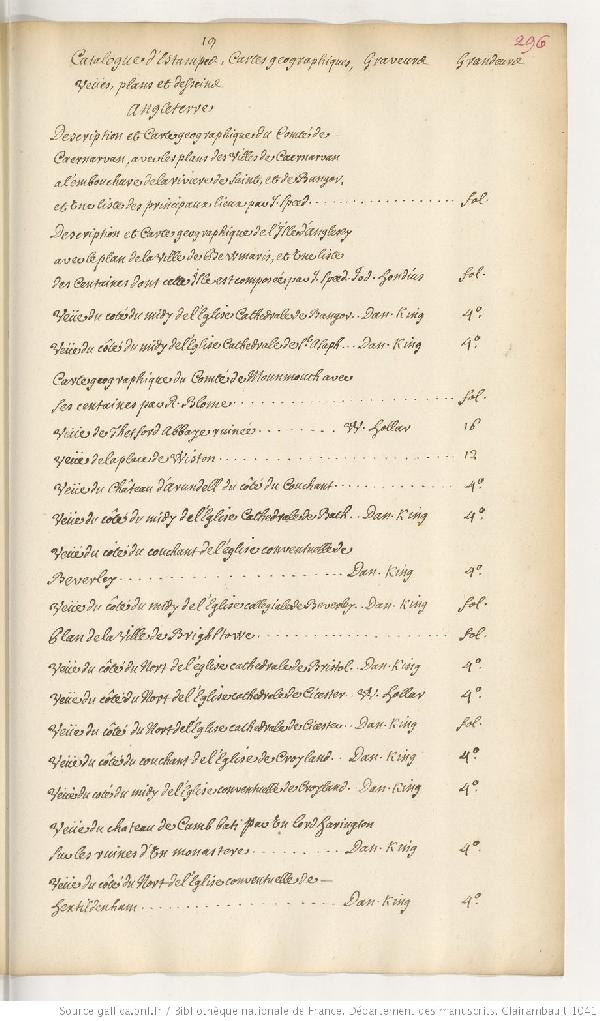 19
296
Catalogue d'Estampes, Cartes geographiques, Graveurs Grandeurs
Veües, plans et desseins
Angleterre
Description et Carte geographique du Comté de
Caernarvan, avec les plans des Villes de Caernarvan
a l'embouchure de la riviere de Seint, et de Bangor,
et Une liste des principaux lieux par J. Speed. fol.
Description et Carte geographique de l'Isle d'Anglesey
avec le plan de la Ville de Bewmaris, et Une liste
des Centaines dont cette Isle est composée par J. Speed. Jod. Hondius fol.
Veüe du coté du midy de l'Eglise Cathedrale de Bangor. Dan. King 4º.
Veüe du côté du midy de l'Eglise Cathedrale de St. Asaph. Dan. King 4º.
Carte geographique du Comté de Mounmouth avec
ses centaines par R. Blome. fol.
Veüe de Thetford Abbaye ruinée. W. Hollar 16
Veüe de la place de Wiston. 12
Veüe du Château d'Arundell du côté du Couchant. 4º.
Veüe du côté du midy de l'Eglise Cathedrale de Bath. Dan. King 4º.
Veüe du côté du couchant de l'église conventuelle de
Beverley. Dan. King 4º.
Veüe du côté du midy de l'Eglise collegiale de Beverley. Dan. King fol.
Plan de la Ville de Brightstowe. fol.
Veüe du côté du Nort de l'eglise cathedrale de Bristol. Dan. King 4º.
Veüe du côté du Nort de l'Eglise cathedrale de Cicester W. Hollar 4º.
Veüe du côté du Nort de l'Eglise cathedrale de Cicester. Dan. King fol.
Veüe du côté du couchant de l'Eglise de Croyland. Dan. King 4º.
Veüe du coté du midy de l'Eglise conventuelle de Croyland. Dan. King 4º.
Veüe du chateau de Cumb bati par Un lord Harington
sur les ruines d'Un monastere. Dan. King 4º.
Veüe du côté du Nort de l'Eglise conventuelle de
Hertildenham. Dan. King 4º.
Source gallica.bnf.fr / Bibliothèque nationale de France. Département des manuscrits. Clairambault 1041